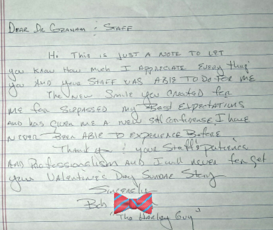 Dear Dr Graham & Staff
Hi This is just a note to let
you know how much I appreciate everything
you and your staff was able to do for me
The new smile you created for
me far surpassed my Best Expectations
and has given me a new self confidence I have
never been able to experience before
Thank you & your staffs patience
and Professionalism and I will never forget
your Valentine's Day Smore Story
Sincerely
Bob
"The Harley Guy"